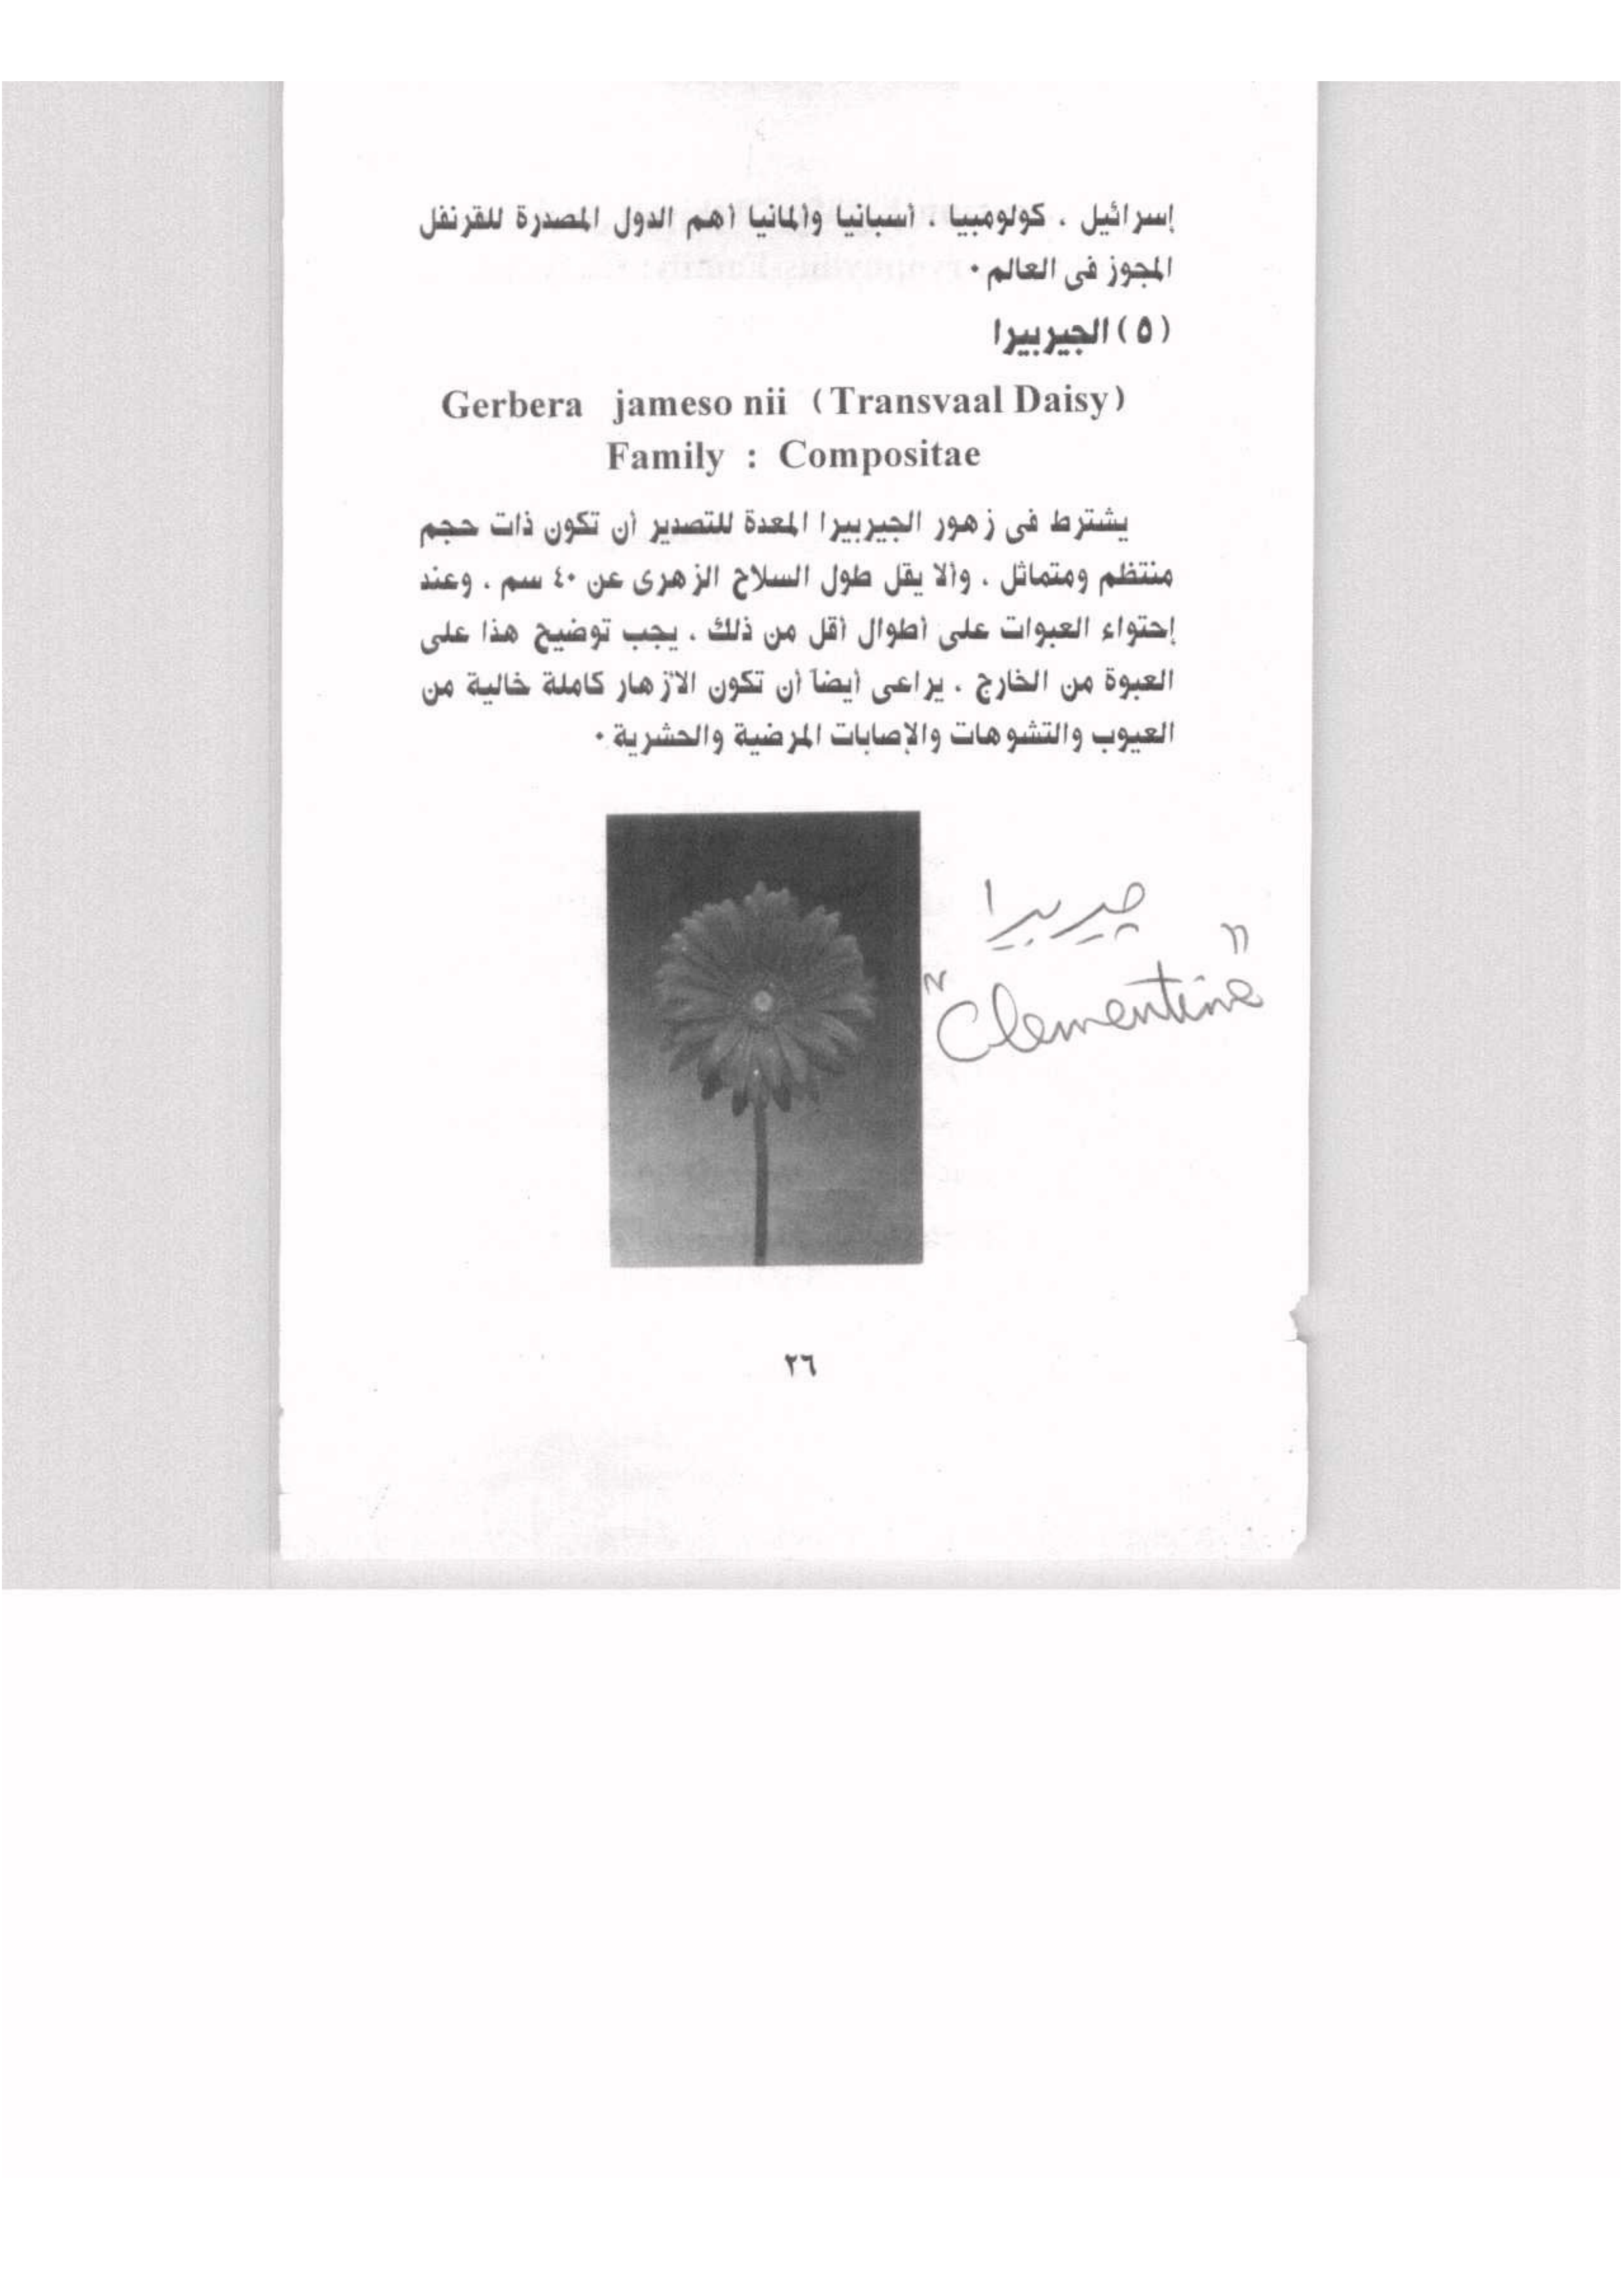 إسرائيل ، كولومبيا ، أسبانيا وألمانيا أهم الدول المصدرة للقرنفل
المجوز فى العالم ٠
(٥) الجيربيرا
Gerbera jameso nii (Transvaal Daisy)
Family : Compositae
يشترط فى زهور الجيربيرا المعدة للتصدير أن تكون ذات حجم
منتظم ومتماثل ، وألا يقل طول السلاح الزهرى عن ٤٠ سم ، وعند
إحتواء العبوات على أطوال أقل من ذلك ، يجب توضيح هذا على
العبوة من الخارج ، يراعى أيضاً أن تكون الأزهار كاملة خالية من
العيوب والتشوهات والإصابات المرضية والحشرية ٠
جربيرا
"Clementine"
٢٦